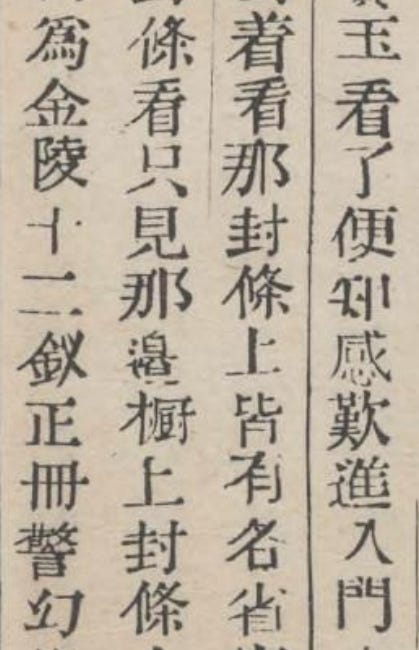 玉看了便知感歎進入門
着看那封條上皆有名省
條看只見那邊橱上封條
爲金陵十二釵正冊警幻